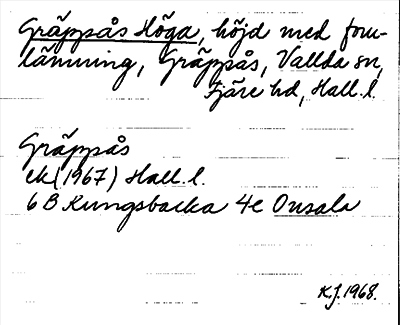 Gräppsås Höga, höjd med forn-
lämning, Gräppsås, Vallda sn,
Fjäre hd, Hall. l.
Gräppsås
ek (1967) Hall. l.
6 B Kungsbacka 4e Onsala
K.J. 1968.